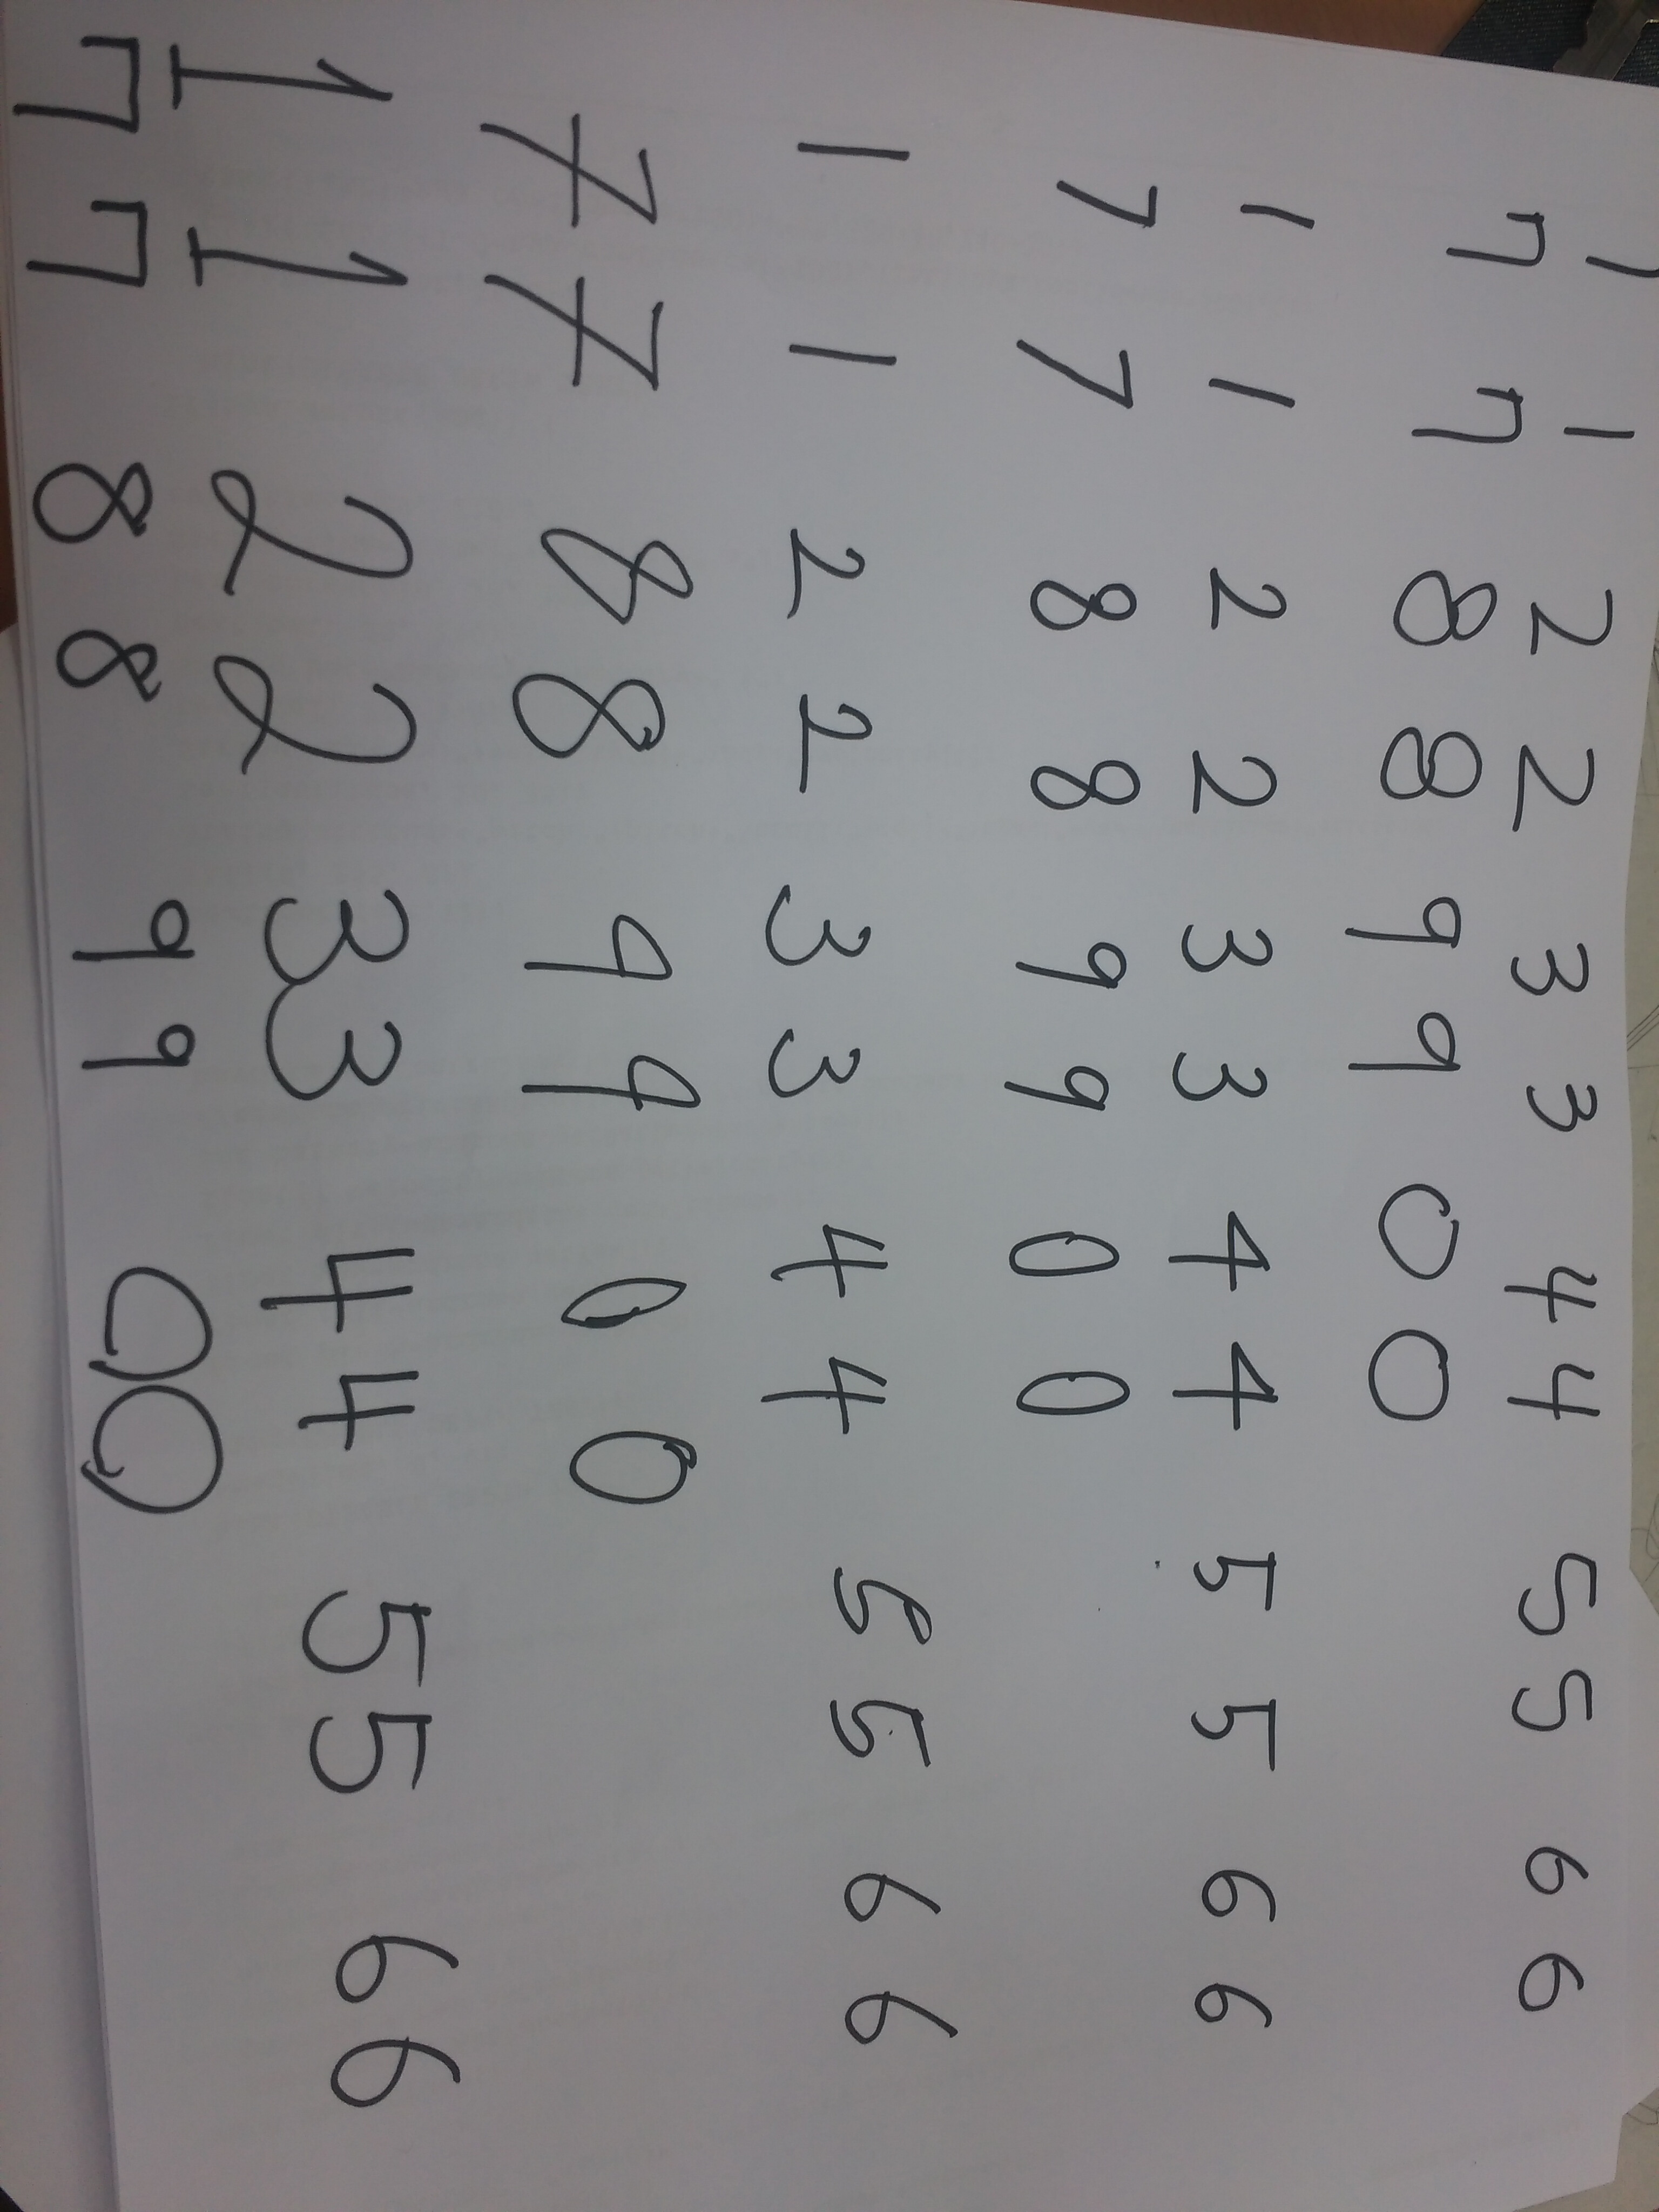 1 1 2 2 3 3 4 4 5 5 6 6
7 7 8 8 9 9 0 0
1 1 2 2 3 3 4 4 5 5 6 6
7 7 8 8 9 9 0 0
1 1 2 2 3 3 4 4 5 5 6 6
7 7 8 8 9 9 0 0
1 1 2 2 3 3 4 4 5 5 6 6
7 7 8 8 9 9 0 0